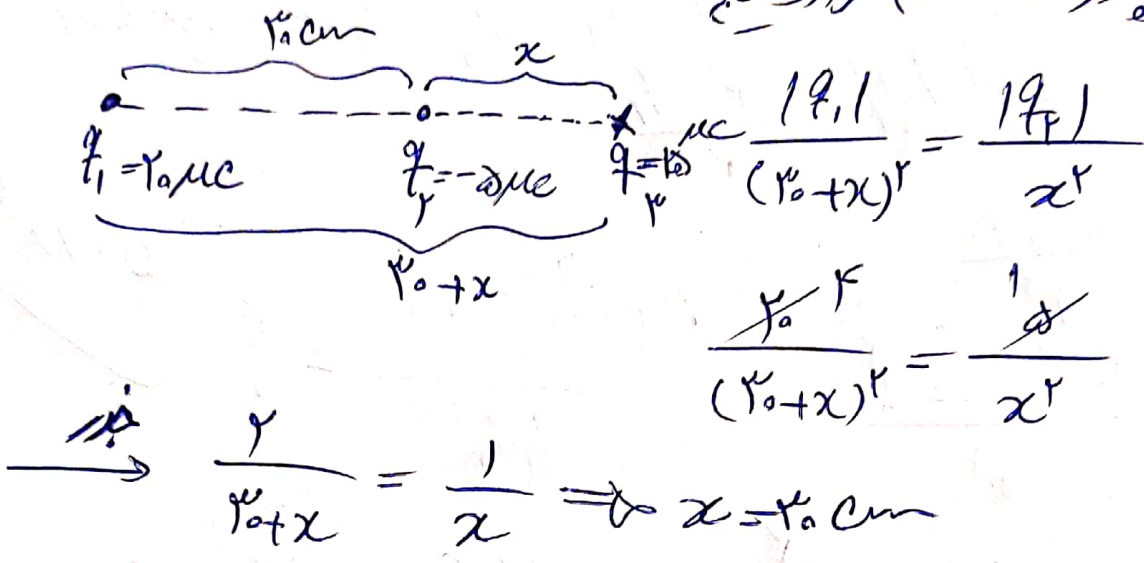 ۳۰ cm
x
q₁ = ۲۰ μC q₂ = -۵ μC q₃ = μC
۳۰ + x
|q₁| / (۳۰ + x)^۲ = |q₂| / x^۲
۲۰ ۴ / (۳۰ + x)^۲ = ۵ ۱ / x^۲
جذر → ۲ / (۳۰ + x) = ۱ / x ⇒ x = ۳۰ cm